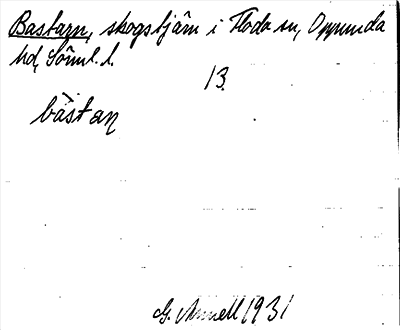 Bastarn, skogstjärn i Floda sn, Oppunda
hd, Söml. l.
13.
bàstan
G. Annell 1931